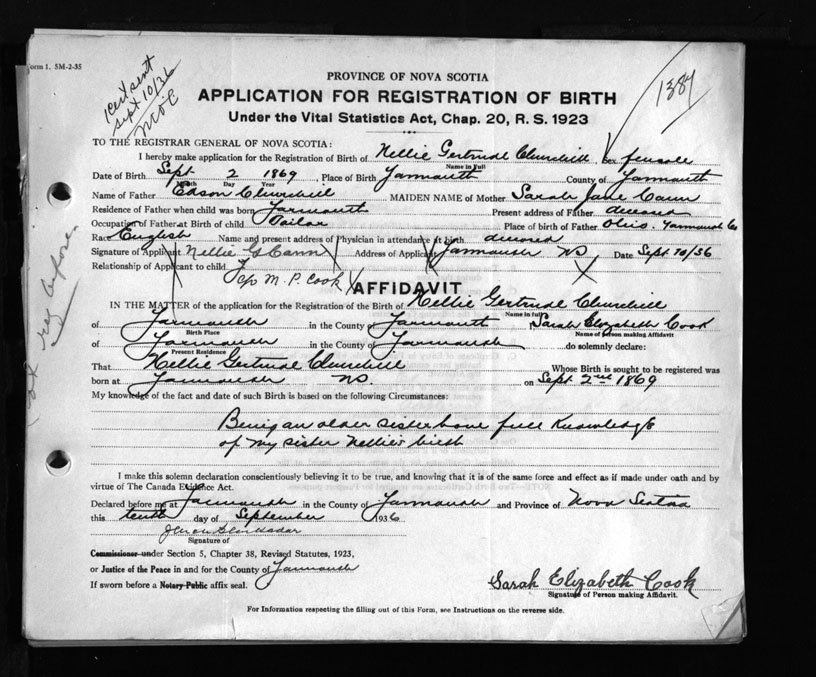 orm 1. 5M-2-35
Cert sent
Sept 10/36
1384
PROVINCE OF NOVA SCOTIA
APPLICATION FOR REGISTRATION OF BIRTH
Under the Vital Statistics Act, Chap. 20, R. S. 1923
TO THE REGISTRAR GENERAL OF NOVA SCOTIA:
I hereby make application for the Registration of Birth of Nellie Gertrude Churchill, Sex female
Name in Full
Date of Birth Sept 2 1869, Place of Birth Yarmouth County of Yarmouth
Month Day Year
Name of Father Edson Churchill MAIDEN NAME of Mother Sarah Jane Cann
Residence of Father when child was born Yarmouth Present address of Father deceased
Occupation of Father at Birth of child Tailor Place of birth of Father Ohio. Yarmouth Co
Race English Name and present address of Physician in attendance at birth deceased
Signature of Applicant Nellie G Cann Address of Applicant Yarmouth NS Date Sept 10/36
Relationship of Applicant to child
c/o M. P. Cook
AFFIDAVIT
IN THE MATTER of the application for the Registration of the Birth of Nellie Gertrude Churchill
Name in full
of Yarmouth in the County of Yarmouth Sarah Elizabeth Cook
Birth Place Name of Person making Affidavit
of Yarmouth in the County of Yarmouth do solemnly declare:
Present Residence
That Nellie Gertrude Churchill Whose Birth is sought to be registered was
born at Yarmouth NS. on Sept 2nd 1869
My knowledge of the fact and date of such Birth is based on the following Circumstances:
Being an older sister have full Knowledge
of my sister Nellie's birth
I make this solemn declaration conscientiously believing it to be true, and knowing that it is of the same force and effect as if made under oath and by
virtue of The Canada Evidence Act.
Declared before me at Yarmouth in the County of Yarmouth and Province of Nova Scotia
this tenth day of September 1936
Signature of
Commissioner under Section 5, Chapter 38, Revised Statutes, 1923,
or Justice of the Peace in and for the County of Yarmouth
If sworn before a Notary Public affix seal.
Sarah Elizabeth Cook
Signature of Person making Affidavit.
For Information respecting the filling out of this Form, see Instructions on the reverse side.